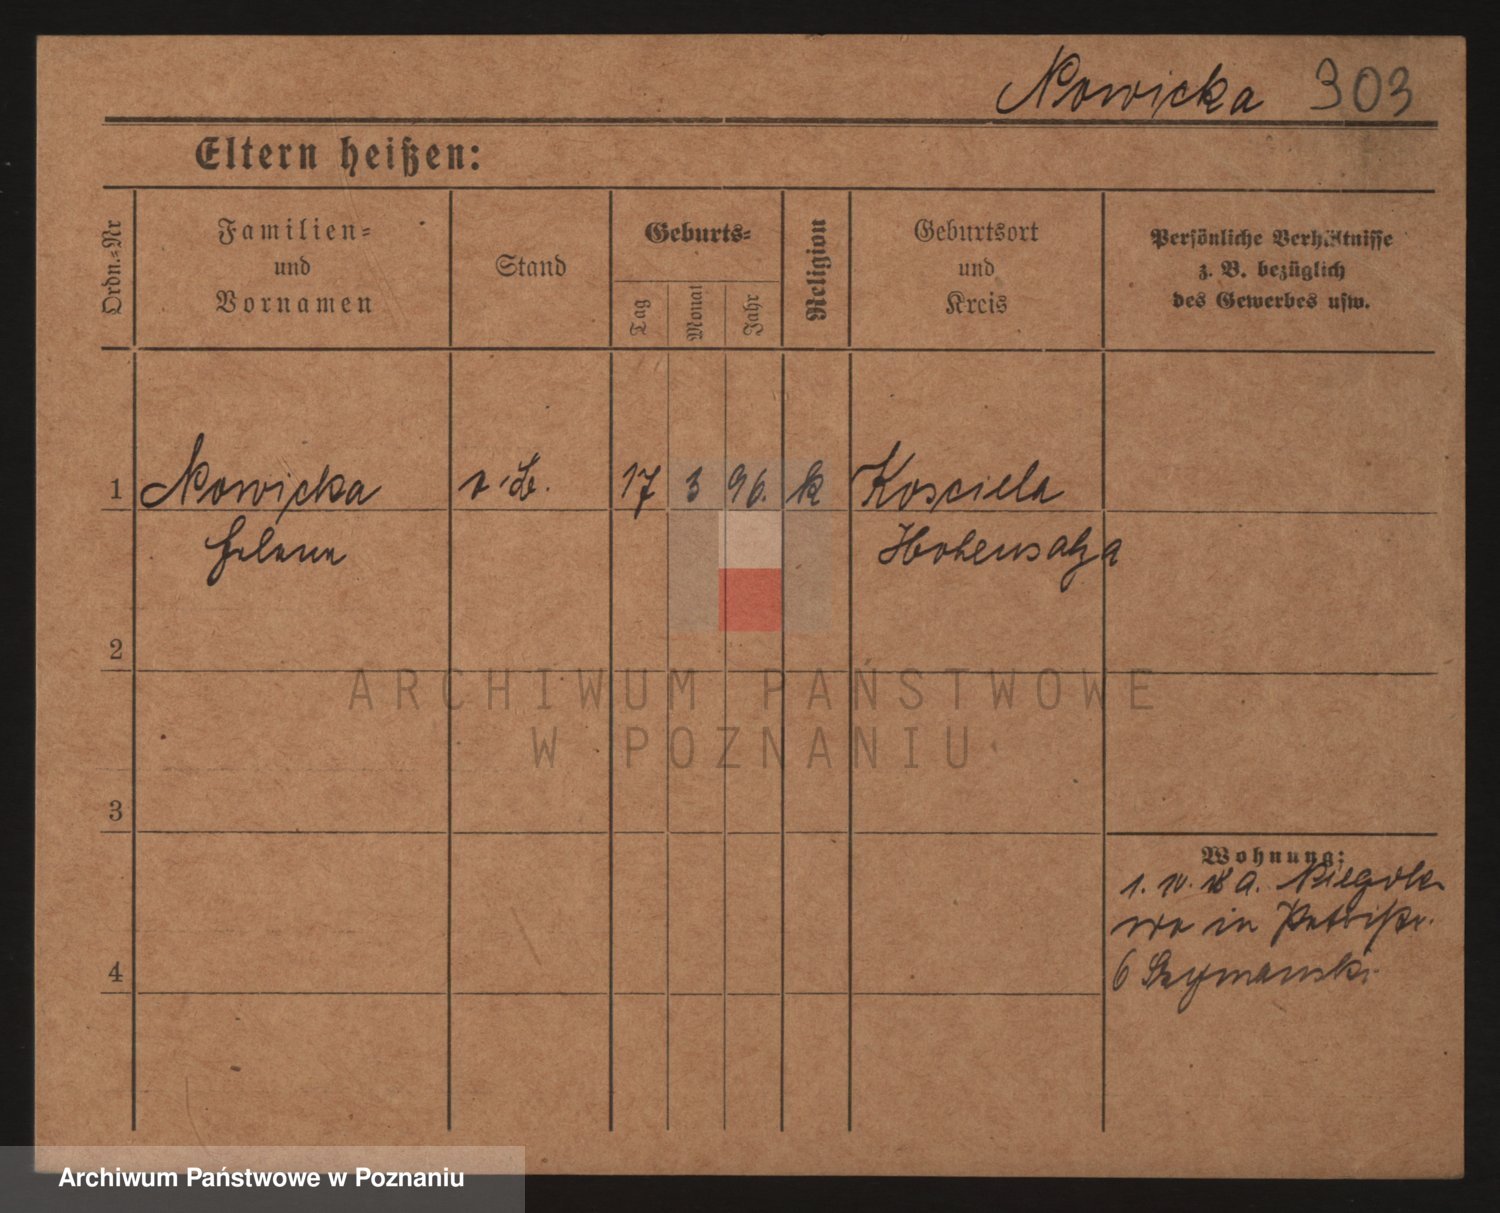 Nowicka 303
Eltern heißen:
Ordn.-Nr
Familien-
und
Vornamen
Stand
Geburts-
Tag
Monat
Jahr
Religion
Geburtsort
und
Kreis
Persönliche Verhältnisse
z. B. bezüglich
des Gewerbes usw.
1 Nowicka 17 3 96. k Kosciela
Helene Hohensalza
2
3
4
Wohnung:
1. 10. 18 a.
wo in
6 Szymanski
ARCHIWUM PAŃSTWOWE
W POZNANIU
Archiwum Państwowe w Poznaniu